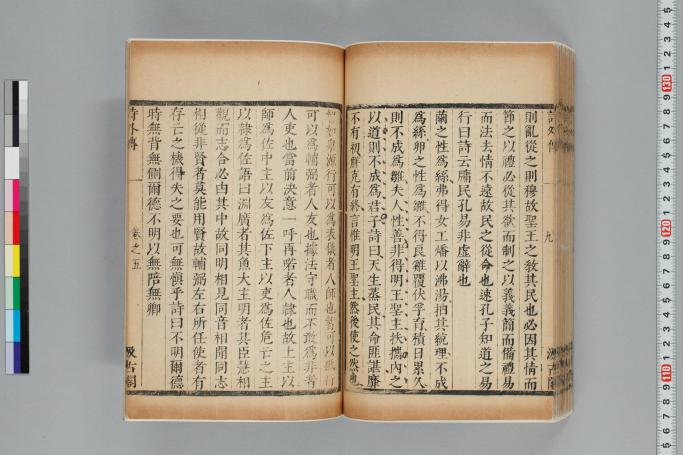 詩外傳
九
汲古閣
則亂從之則穆故聖王之教其民也必因其情而
節之以禮必從其欲而制之以義義簡而備禮易
而法去情不遠故民之從命也速孔子知道之易
行曰詩云牖民孔易非虛辭也
繭之性爲絲弗得女工燔以沸湯抽其統理不成
爲絲卵之性爲雛不得良雞覆伏孚育積日累久
則不成爲雛夫人性善非得明王聖主扶攜內之
以道則不成爲君子詩曰天生蒸民其命匪諶靡
不有初鮮克有終言惟明王聖主然後使之然也
智如泉源行可以爲表儀者人師也智可以砥行
可以爲輔弼者人友也據法守職而不敢爲非者
人吏也當前決意一呼再喏者人隸也故上主以
師爲佐中主以友爲佐下主以吏爲佐危亡之主
以隸爲佐語曰淵廣者其魚大主明者其臣慧相
觀而志合必由其中故同明相見同音相聞同志
相從非賢者莫能用賢故輔弼左右所任使者有
存亡之機得失之要也可無愼乎詩曰不明爾德
時無背無側爾德不明以無陪無卿
詩外傳
卷之五
汲古閣
1 2 3 4 5
130
120
110